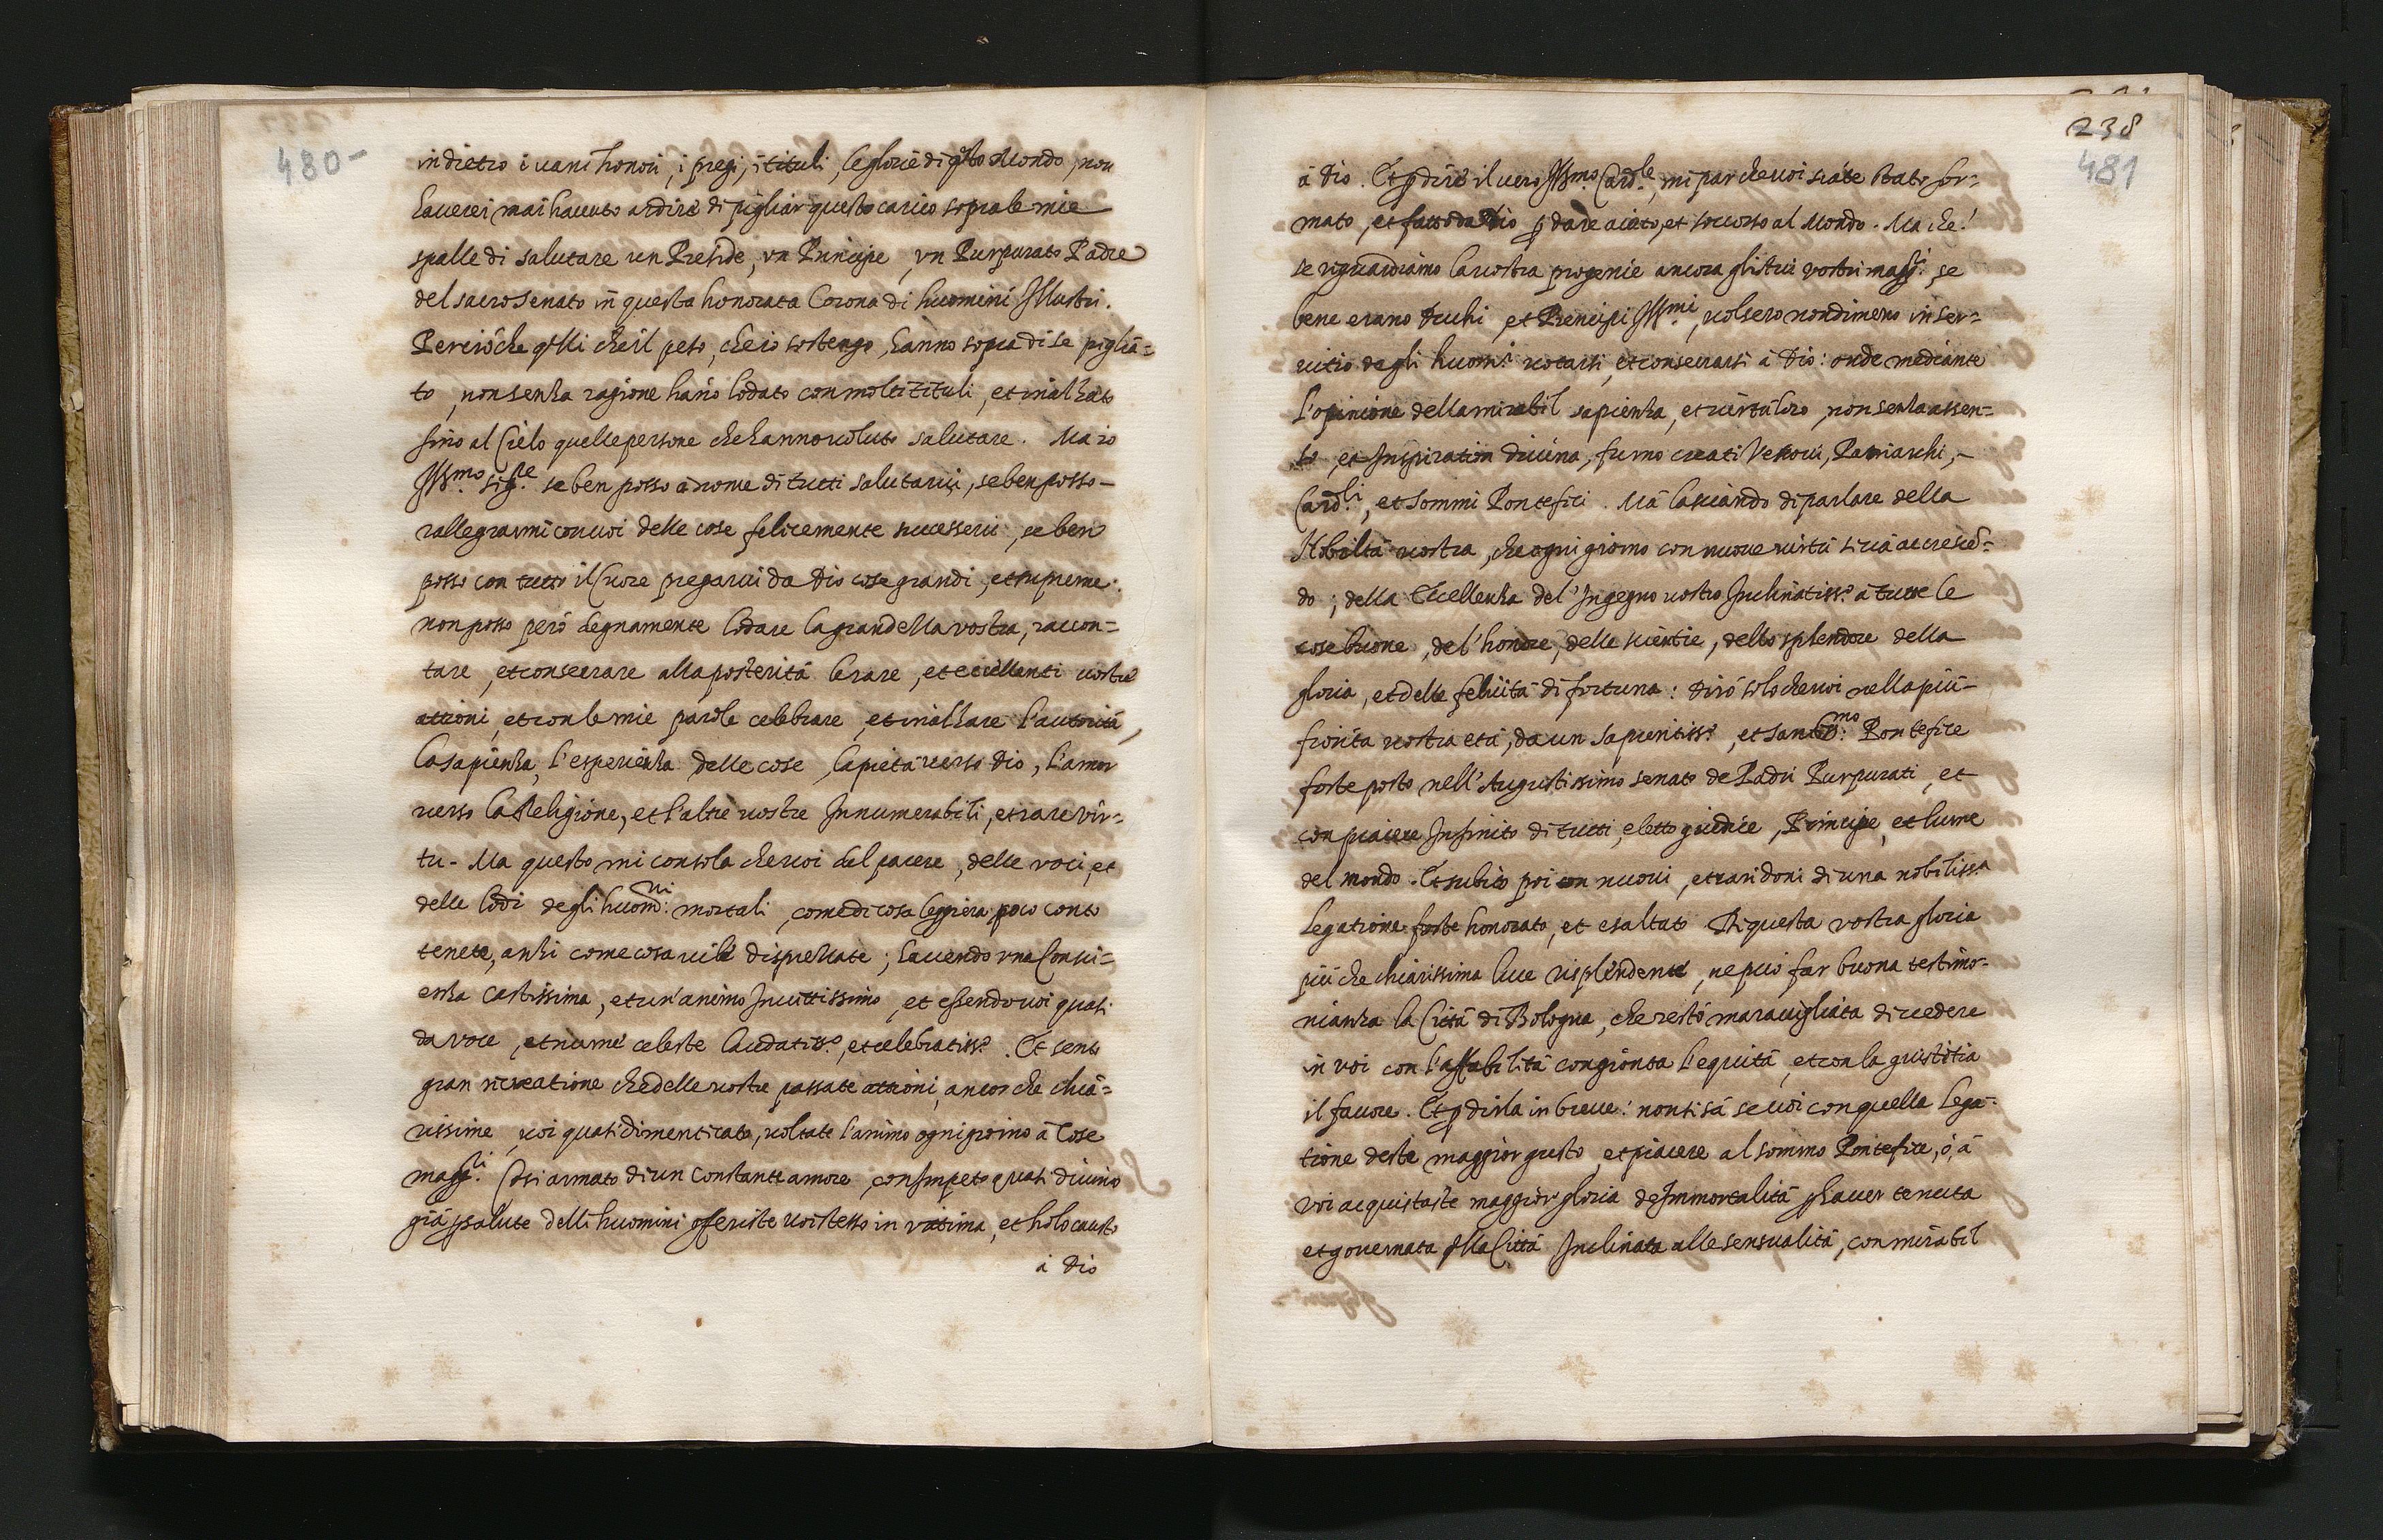 480-
indietro i uani honori, i pregi, i tituli, le glorie di q̃sto Mondo, non
hauerei mai hauuto ardire di pigliar questo carico sopra le mie
spalle di salutare un Preside, vn Principe, vn Purpurato Padre
del sacro senato in questa honorata Corona di huomini Illustri.
Perciòche q̃lli che il peso, che io sostengo, hanno sopra di se piglia=
to, non senza ragione hãno lodato con molti tituli, et inalzato
sino al Cielo quelle persone che hanno uoluto salutare. Ma io
Ill.mo sig.re se ben posso à nome di tutti salutarui, se ben posso -
rallegrarmi con uoi delle cose felicemente successeui, se ben
posso con tutto il Cuore pregarui da Dio cose grandi, et supreme:
non posso però degnamente lodare la grandezza vostra, raccon=
tare, et consecrare alla posterità le rare, et eccellenti uostre
attioni, et con le mie parole celebrare, et inalzare l'autorità,
la sapienza, l'esperienza delle cose, la pietà uerso Dio, l'amor
uerso la Religione, et l'altre uostre Innumerabili, et rare vir=
tu - Ma questo mi consola che uoi del parere, delle voci, et
delle lodi degli huom.ni mortali, come di cosa leggiera poco conto
tenete, anzi come cosa uile disprezzate; hauendo una Consci=
enza castissima, et un'animo Inuittissimo, et essendo uoi quasi
da voce, et nume celeste laudatiss.o, et celebratiss.o. Et sento
gran recreatione che delle uostre passate attioni, ancor che chia=
rissime, uoi quasi dimenticato, uoltate l'animo ogni giorno à Cose
magg.ri Così armato di un constante amore, con Impeto quasi diuino
già p salute delli huomini offeriste uoi stesso in vittima, et holocausto
à Dio
238
481
à Dio. Et p dire il uero Ill.mo Card.le, mi par che uoi siate stato for=
mato, et fatto da Dio p dare aiuto, et soccorso al Mondo. Ma che!
se riguardiamo la uostra progenie ancora gl'istessi vostri magg.ri se
bene erano Duchi, et Prencipi Ill.mi, uolsero nondimeno in ser=
uitio degli huom.ni uotarsi, et consecrarsi à Dio: onde mediante
l'opinione della mirabil sapienza, et uirtù loro, non senza assen=
so et Inspiration diuina, furno creati Vescoui, Patriarchi, -
Card.li, et Sommi Pontefici. Mà lasciando di parlare della
Nobiltà uostra, che ogni giorno con nuoue uirtù si uà accrescẽ=
do; della Eccellenza del'Ingegno uostro Inclinatiss.o à tutte le
cose buone, del'honore, delle scientie, dello splendore della
gloria, et delle felicità di fortuna: Dirò solo che uoi nella più -
fiorita uostra età, da un sapientiss.o, et sant.mo Pontefice
foste posto nell'Augustissimo senato de Padri Purpurati, et
con piacere Infinito di tutti, eletto giudice, Principe, et lume
del mondo. Et subito poi con nuoui, et rari doni di una nobiliss.a
legatione foste honorato, et esaltato Di questa vostra gloria
più che chiarissima luce risplendente, ne può far buona testimo-
nianza la Città di Bologna, che restò marauigliata di uedere
in voi con l'affabilità congionta l'equità, et con la giustitia
il fauore. Et p dirla in breue: non si sà se uoi con quella lega-
tione deste maggior gusto, et piacere al sommo Pontefice, ò, à
voi acquistaste maggior gloria de Immortalità p hauer tenuta
et gouernata q̃lla Città Inclinata alle sensualità, con mirabil